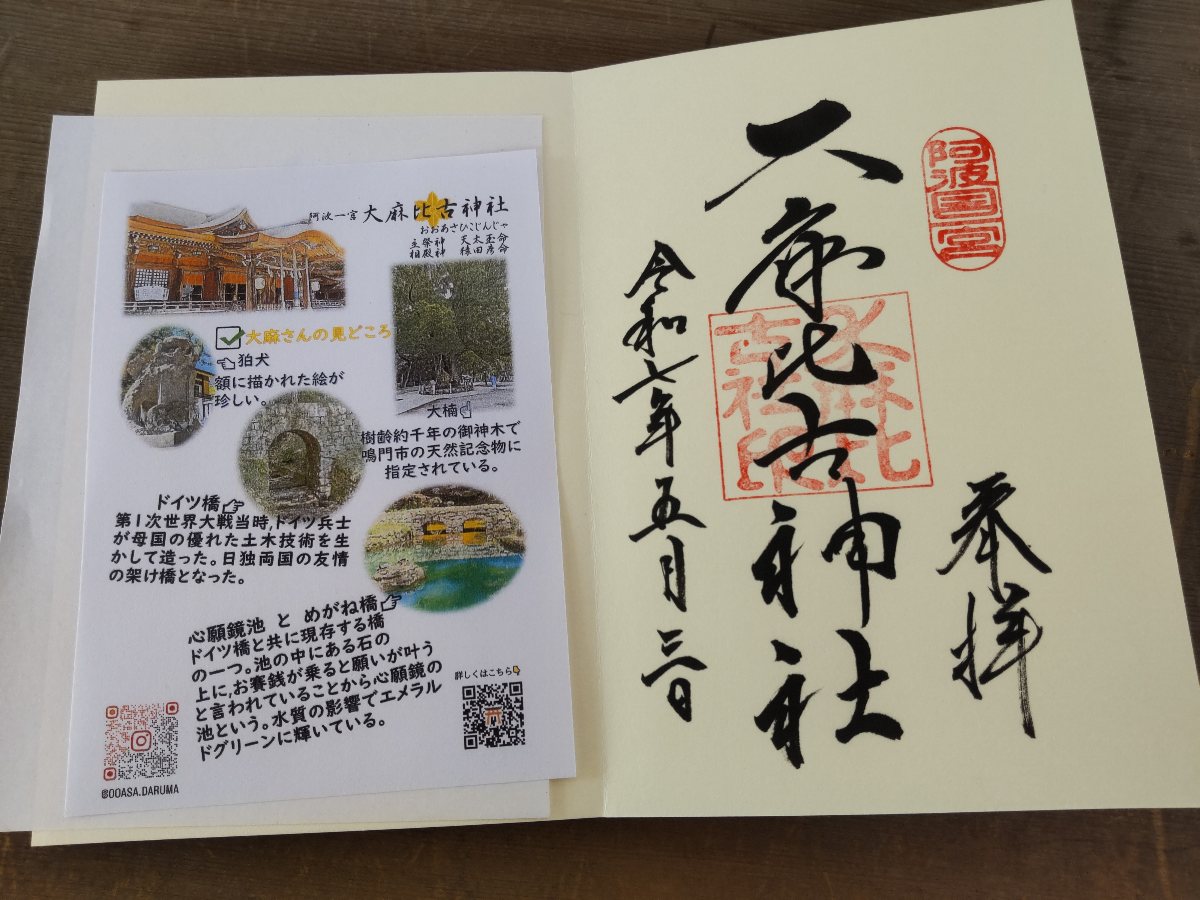 阿波一宮 大麻比古神社
おおあさひこじんじゃ
主祭神 天太玉命
相殿神 猿田彦命
大麻さんの見どころ
狛犬
額に描かれた絵が
珍しい。
大楠
樹齢約千年の御神木で
鳴門市の天然記念物に
指定されている。
ドイツ橋
第1次世界大戦当時,ドイツ兵士
が母国の優れた土木技術を生
かして造った。日独両国の友情
の架け橋となった。
心願鏡池 と めがね橋
ドイツ橋と共に現存する橋
の一つ。池の中にある石の
上に,お賽銭が乗ると願いが叶う
と言われていることから心願鏡の
池という。水質の影響でエメラル
ドグリーンに輝いている。
詳しくはこちら
@OOASA.DARUMA
奉拝
阿波国一宮
大麻比古神社
大麻比古神社印
令和七年五月三日